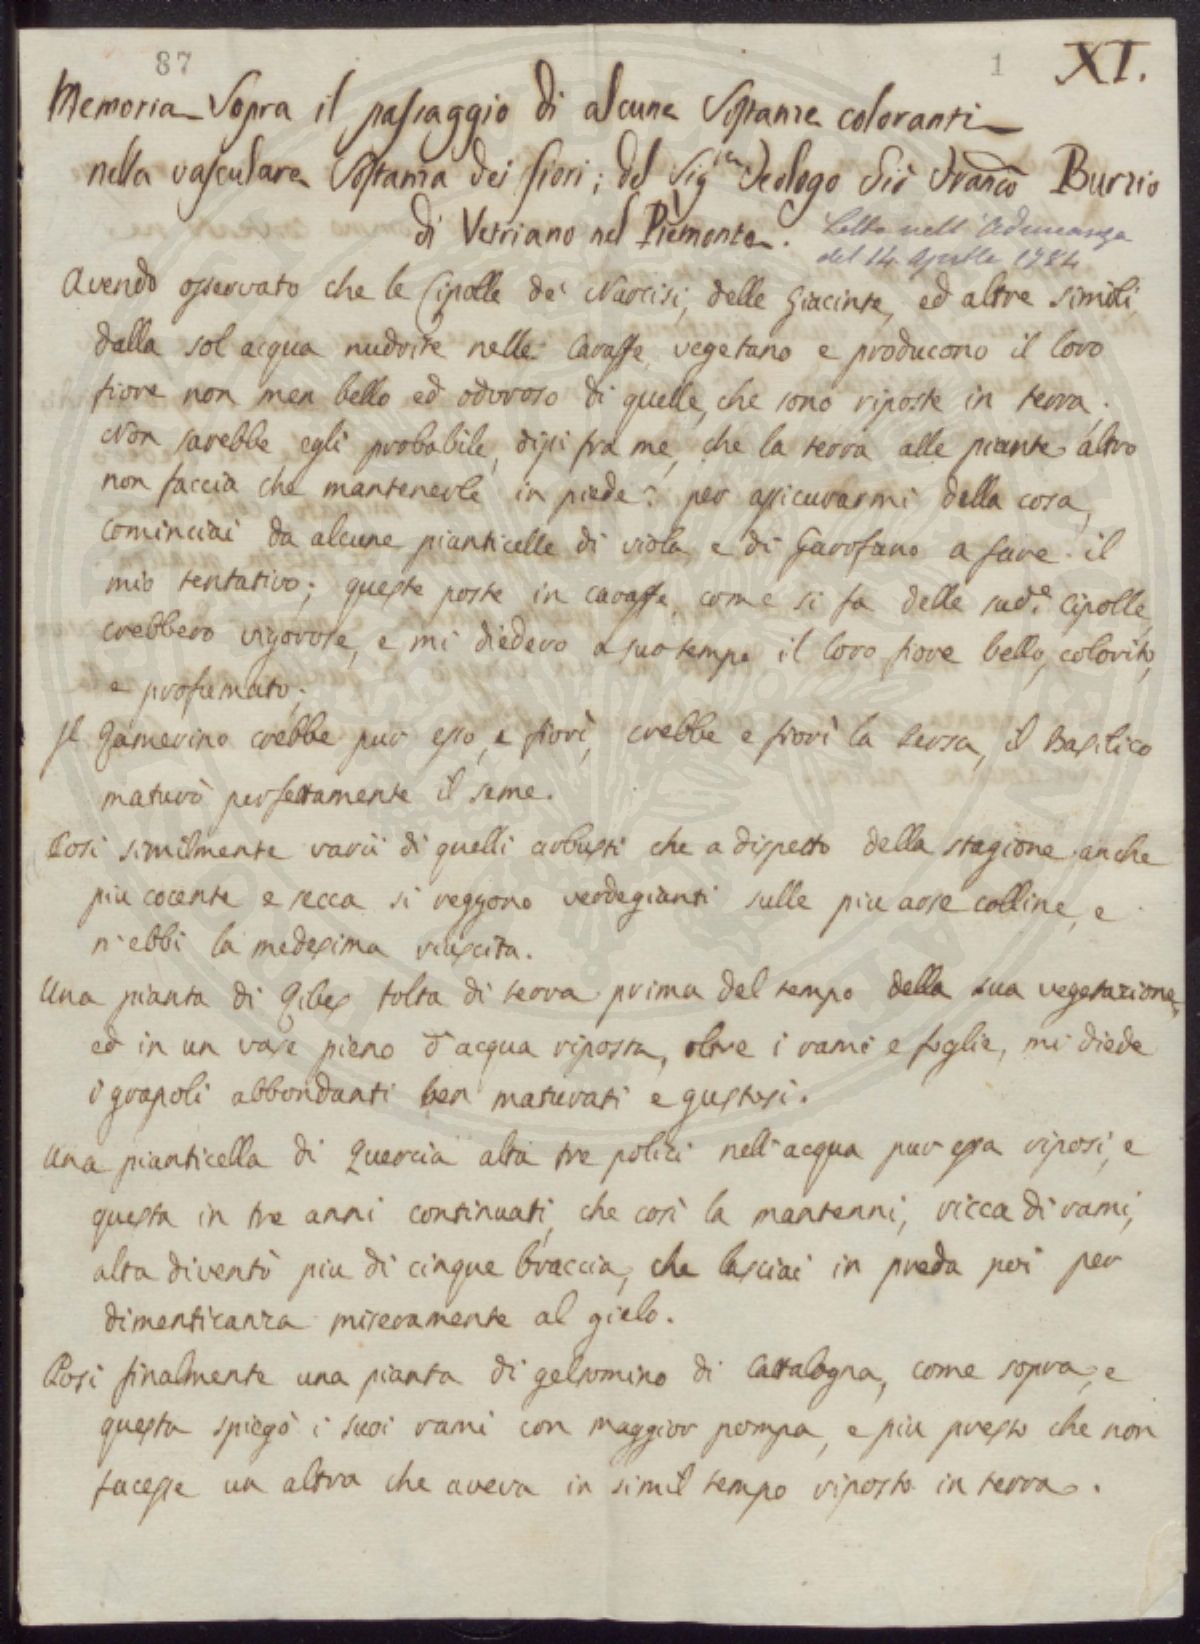 87
1
XI.
Memoria Sopra il passaggio di alcune Sostanze coloranti
nella vasculare Sostanza dei fiori; del Sig.r Teologo Gio Franco Burzio
di Vetriano nel Piemonte.
Letta nell'Adunanza
del 14 Aprile 1784
Avendo osservato che le Cipolle de' Narcisi, delle Giacinte, ed altre simili
dalla sol acqua nudrite nelle Caraffe vegetano e producono il loro
fiore non men bello ed odoroso di quelle, che sono riposte in terra.
Non sarebbe egli probabile, dissi fra me, che la terra alle piante altro
non faccia che mantenerle in piede? per assicurarmi della cosa,
cominciai da alcune pianticelle di viola, e di Garofano a fare il
mio tentativo; queste poste in caraffe, come si fa delle sud.e Cipolle,
crebbero vigorose, e mi diedero a suo tempo il loro fiore bello, colorito,
e profumato.
Il Gamerino crebbe pur esso, e fiorì, crebbe e fiorì la Persa, il Basilico
maturò perfettamente il seme.
Posi similmente varii di quelli arbusti che a dispetto della stagione anche
piu cocente e secca si veggono verdegianti sulle piu arse colline, e
n'ebbi la medesima riuscita.
Una pianta di Ribes tolta di terra prima del tempo della sua vegetazione,
ed in un vase pieno d'acqua riposta, oltre i rami e foglie, mi diede
i grapoli abbondanti ben maturati e gustosi.
Una pianticella di Quercia alta tre polici nell'acqua pur essa riposi, e
questa in tre anni continuati, che così la mantenni, ricca di rami,
alta diventò piu di cinque braccia, che lasciai in preda poi per
dimenticanza miseramente al gielo.
Posi finalmente una pianta di gelsomino di Cattalogna, come sopra, e
questa spiegò i suoi rami con maggior pompa, e piu presto che non
facesse un altra che aveva in simil tempo riposta in terra.